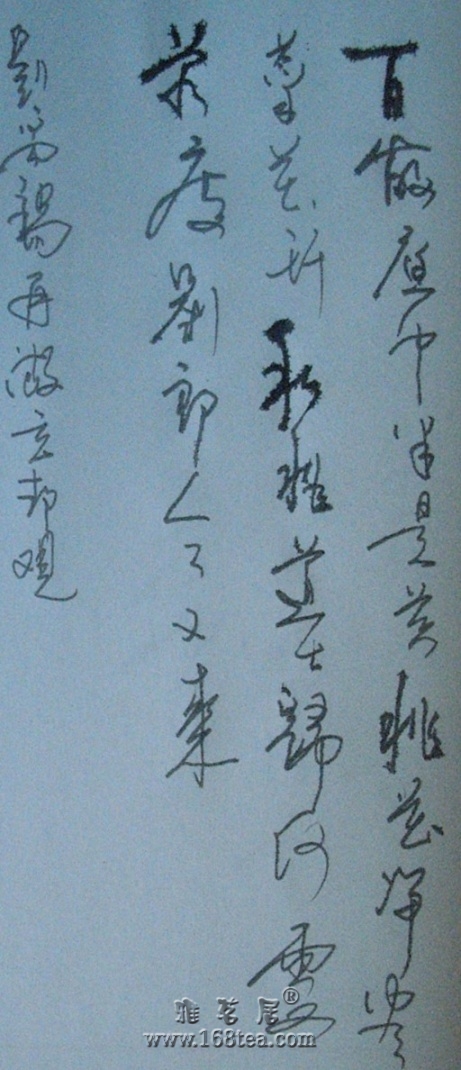 百畝庭中半是苔桃花净尽
菜花开种桃道士歸何處
前度劉郎今又来
劉禹錫再遊玄都观
雅茗居®
www.168tea.com